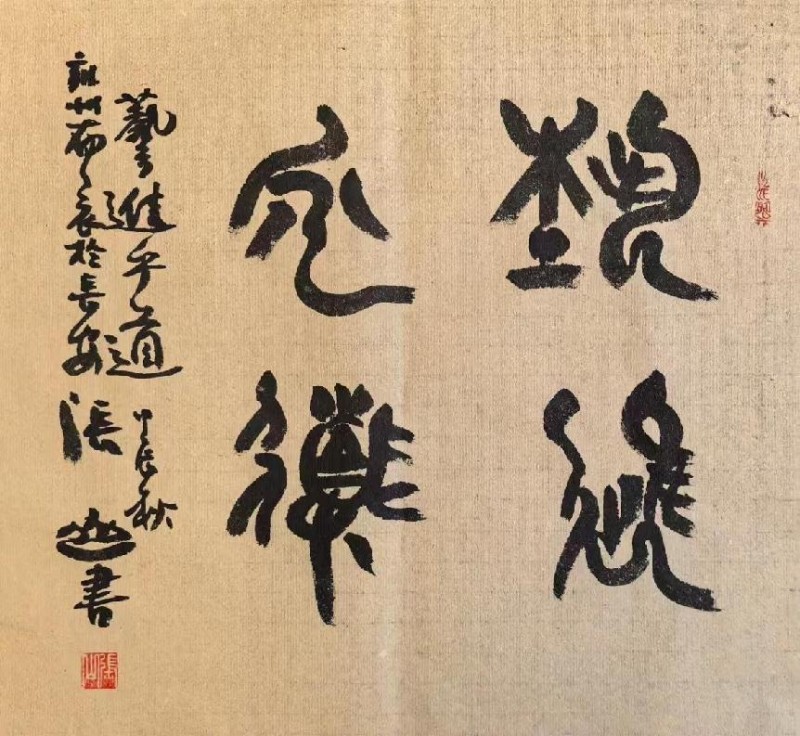 藝進
乎道
藝進乎道
甲辰秋
州布衣於長安
張 書